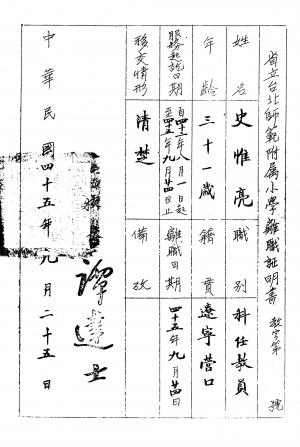 省立台北師範附属小學離職証明書 教字第 號
姓名 史惟亮 職別 科任教員
年齡 三十一歲 籍貫 遼寧營口
服務起訖日期 自四十二年八月一日起至四十五年九月廿四日止 離職日期 四十五年九月廿四日
移交情形 清楚 備攷
中華民國四十五年九月二十五日
譚達士